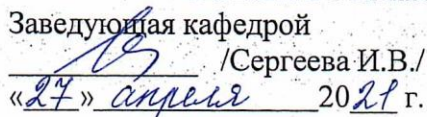 Заведующая кафедрой
/Сергеева И.В./
«27» апреля 2021 г.